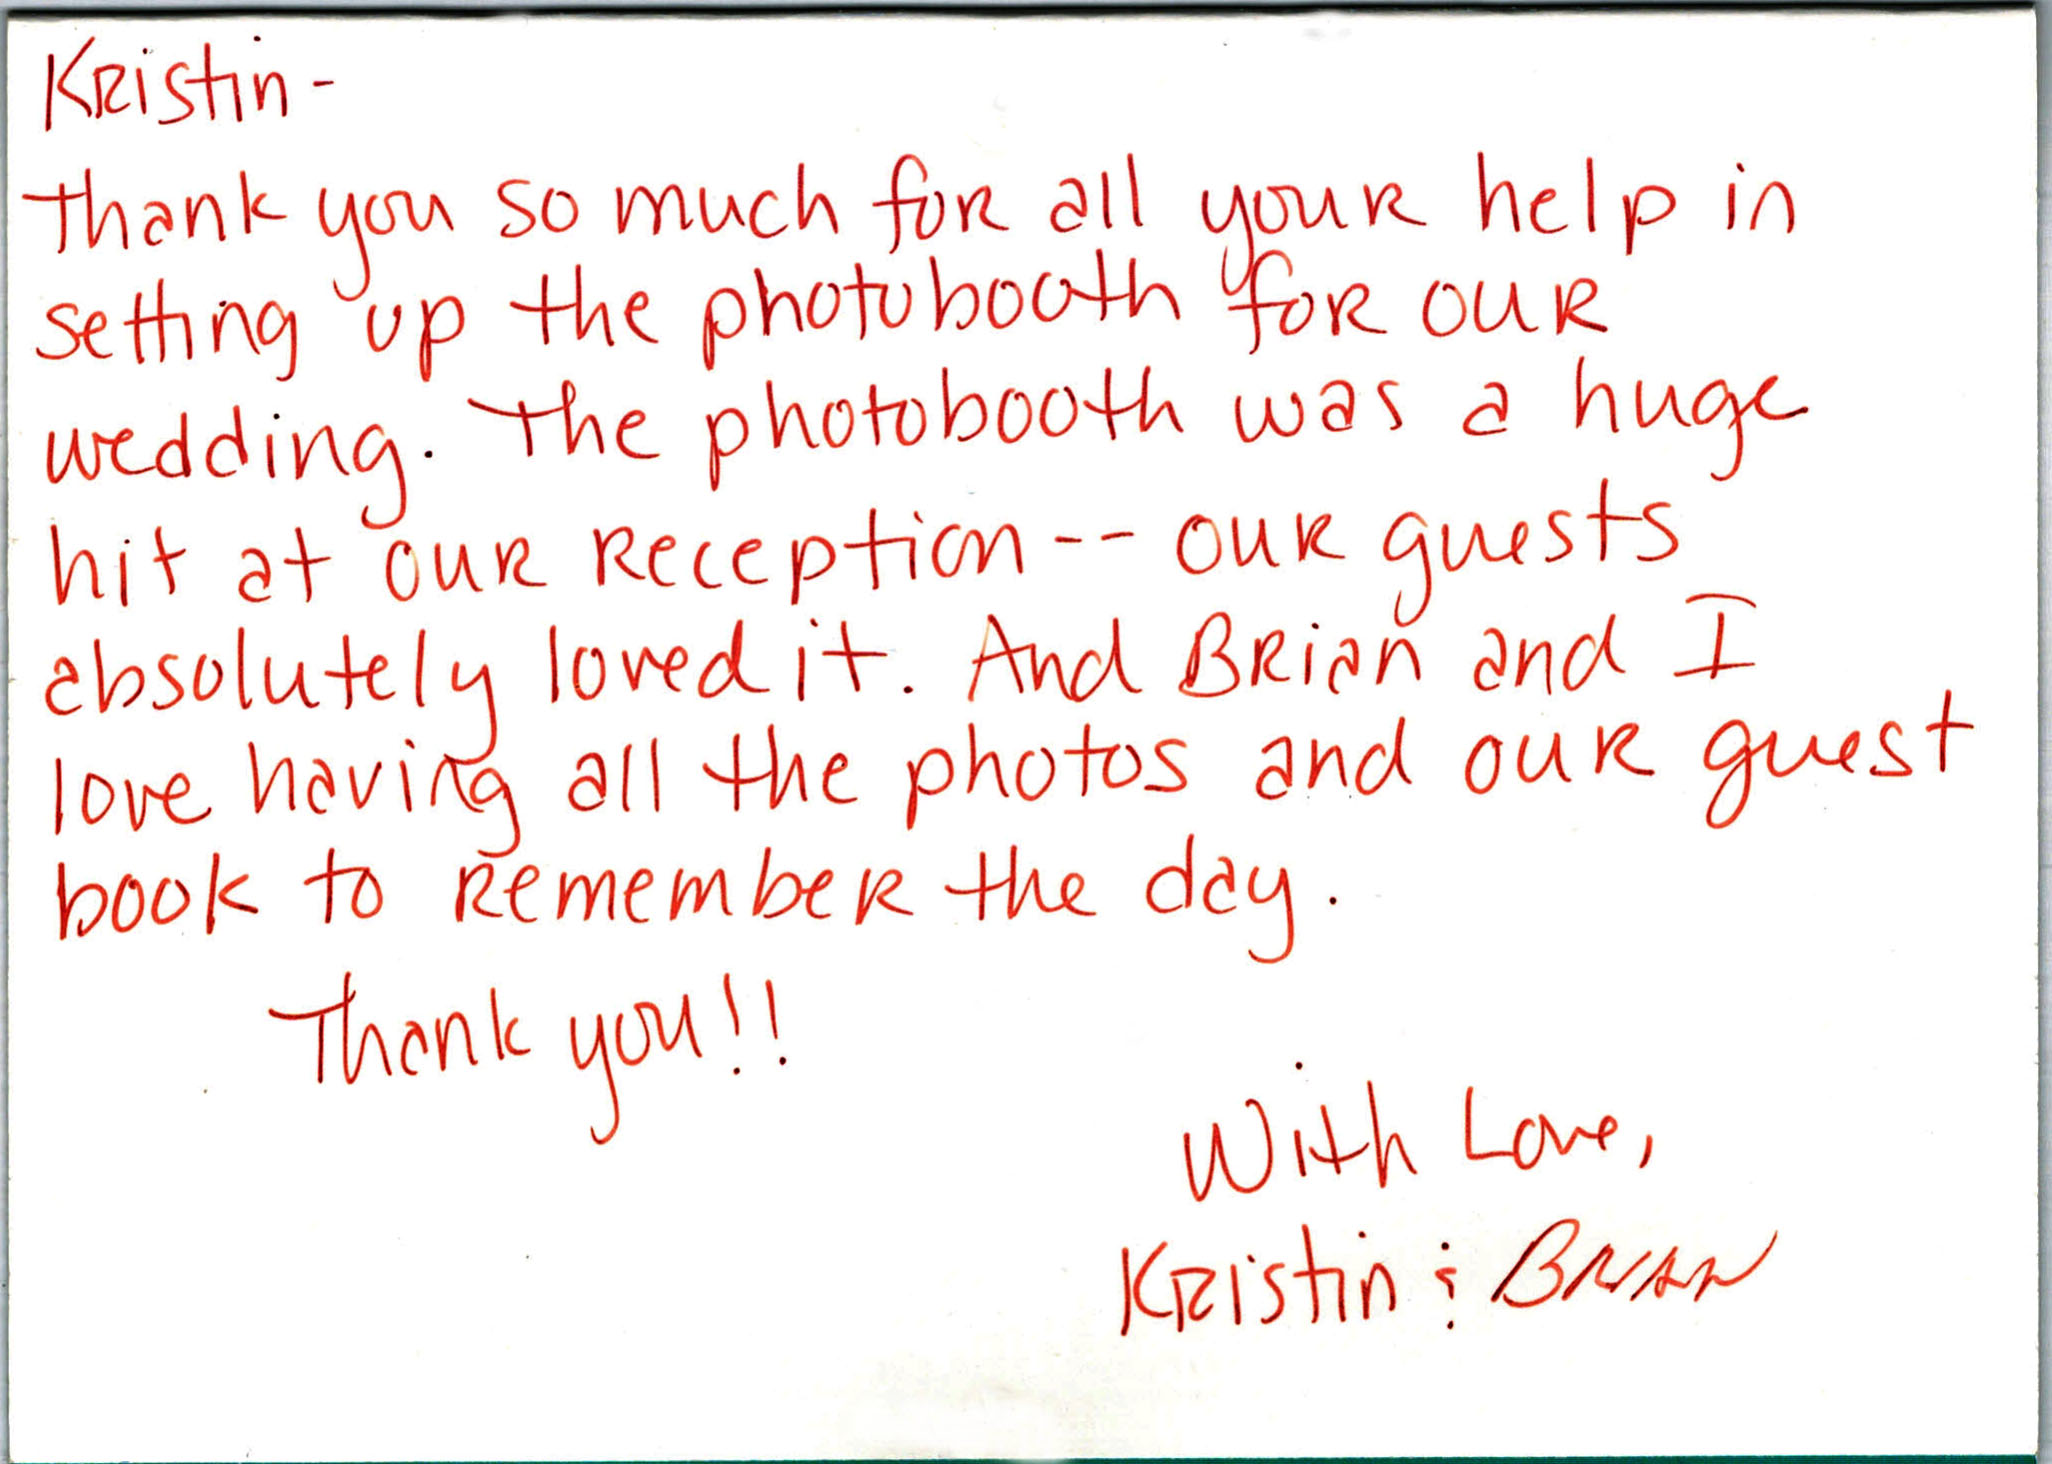 Kristin -
Thank you so much for all your help in
setting up the photobooth for our
wedding. The photobooth was a huge
hit at our reception -- our guests
absolutely loved it. And Brian and I
love having all the photos and our guest
book to remember the day.
Thank you!!
With Love,
Kristin & Brian